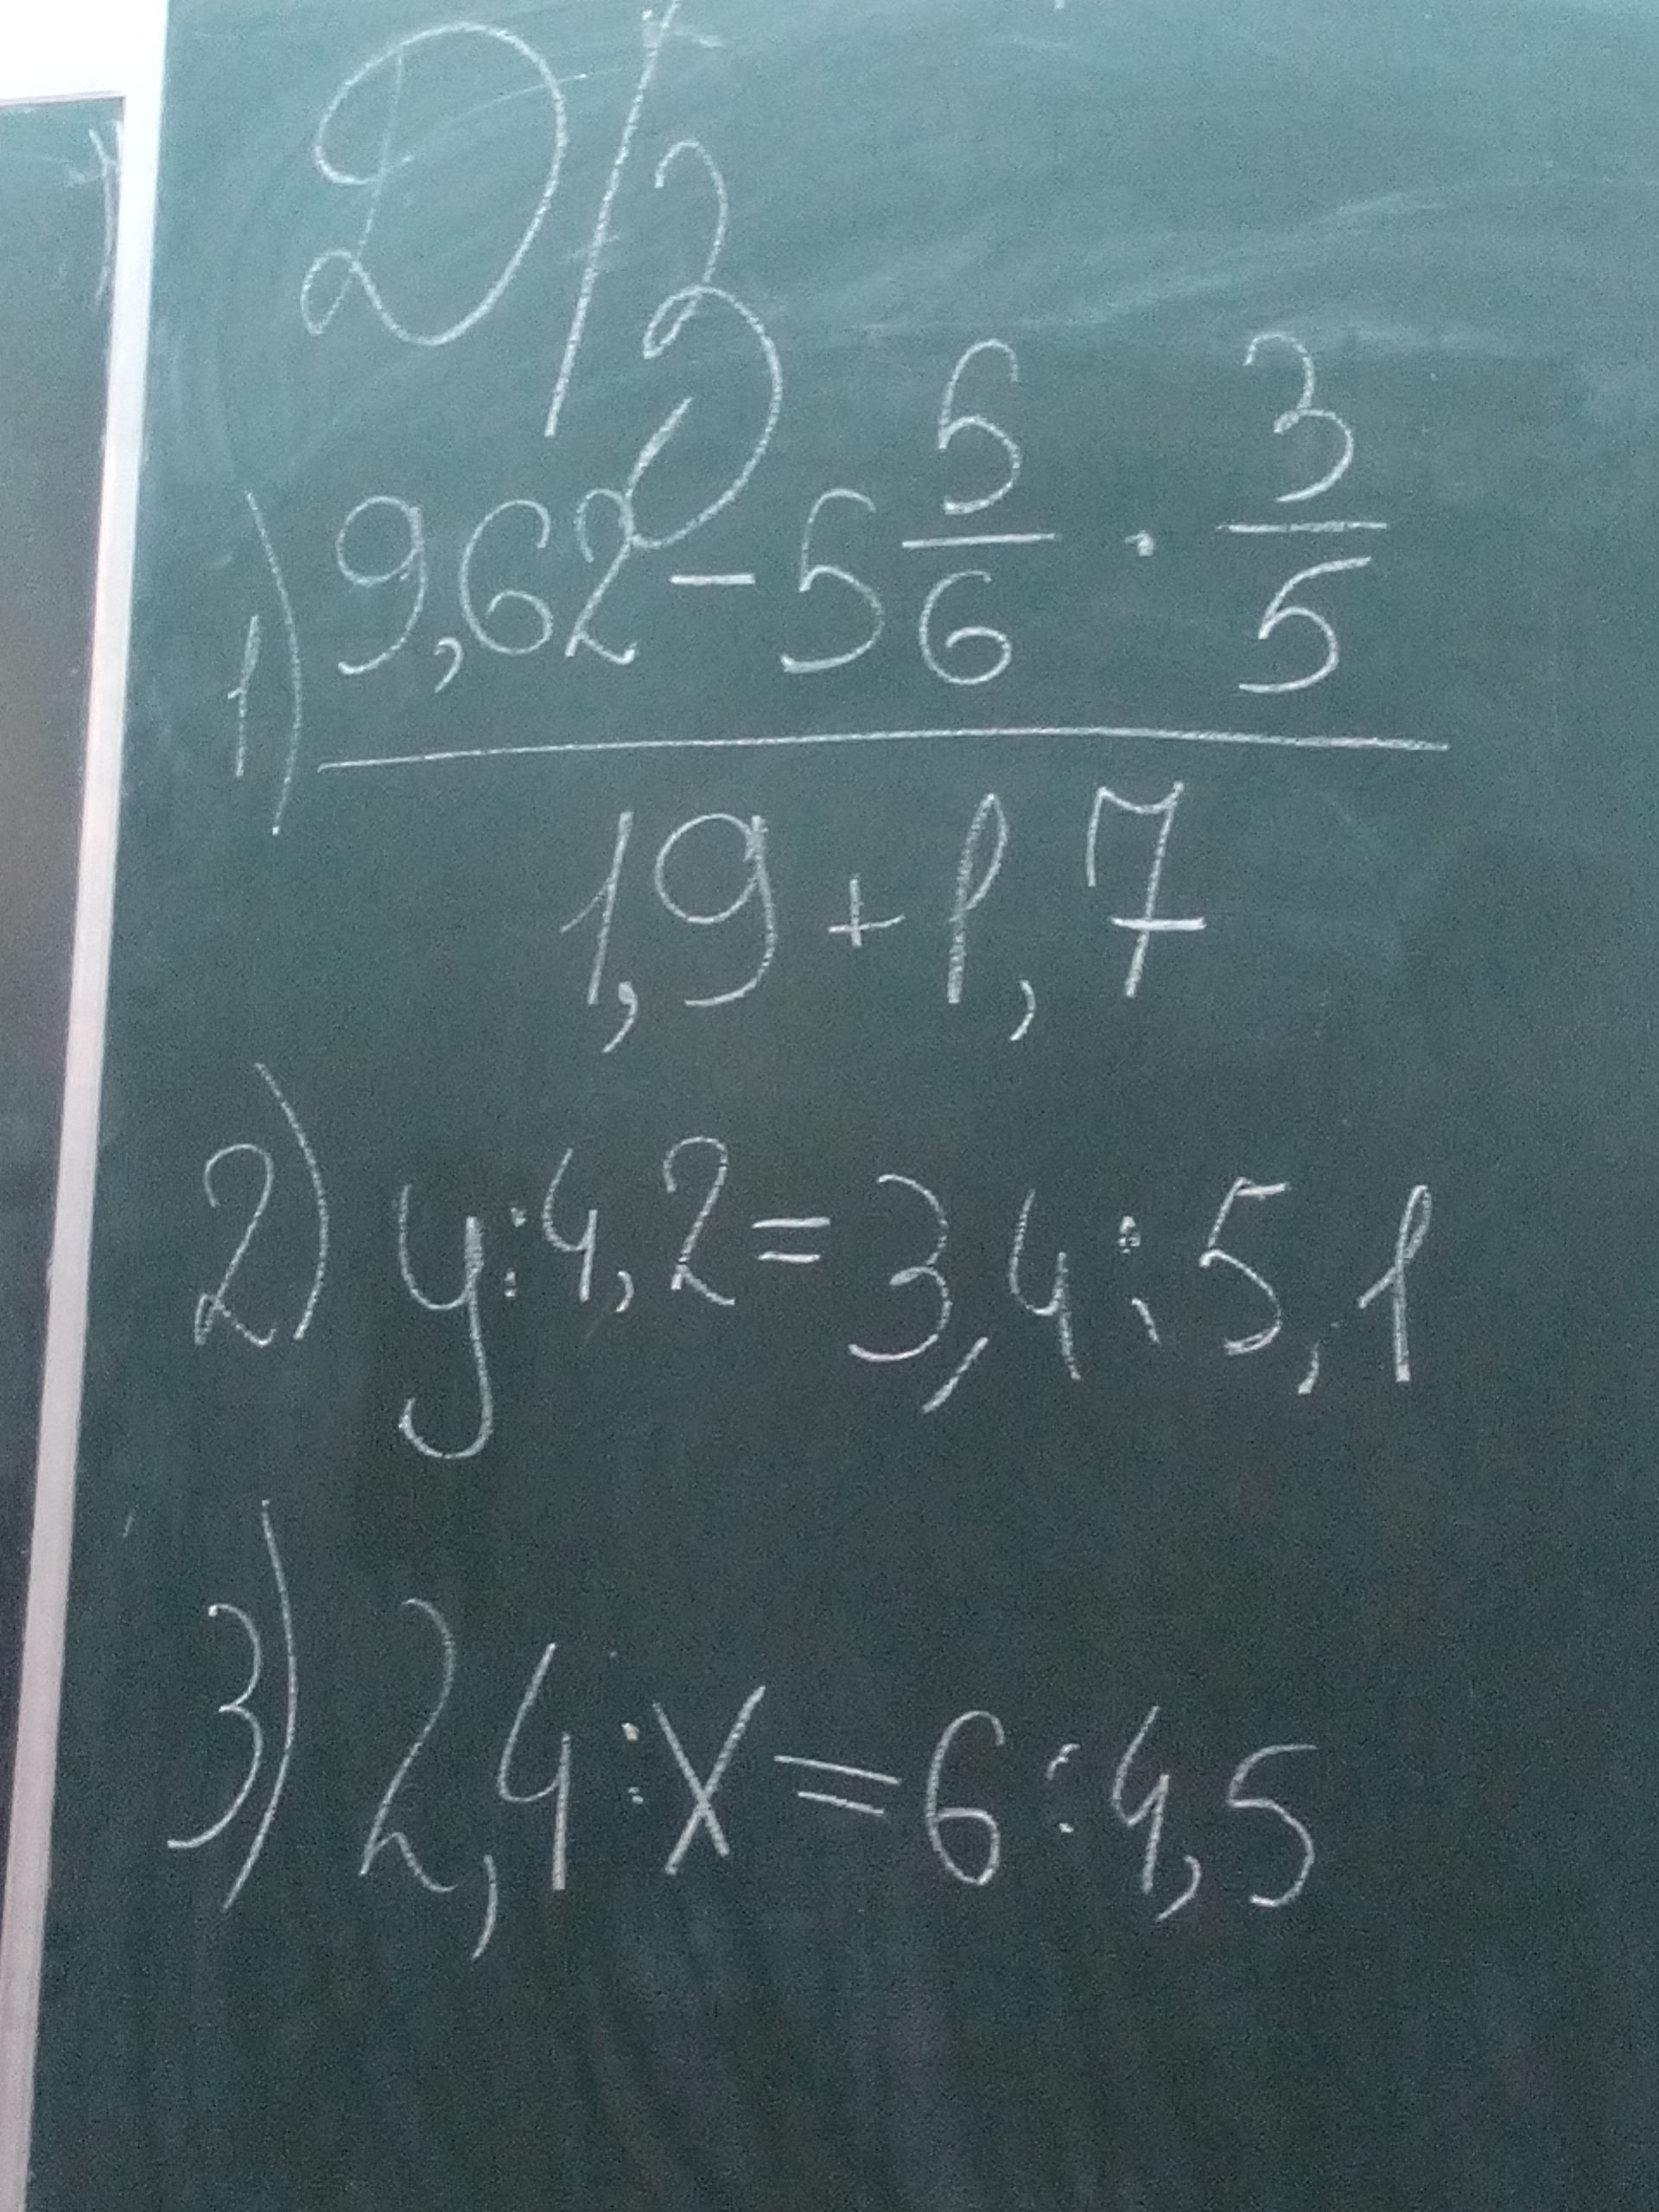 Д/з
1) (9,62 - 5 5/6 · 3/5) / (1,9 + 1,7)
2) y : 4,2 = 3,4 : 5,1
3) 2,4 : x = 6 : 4,5